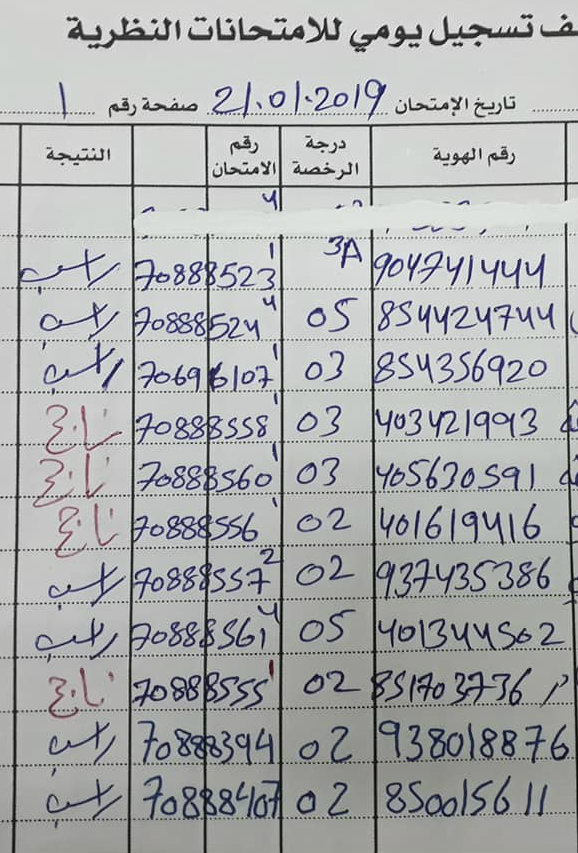 تسجيل يومي للامتحانات النظرية
تاريخ الإمتحان 21.01.2019 صفحة رقم 1
رقم الهوية درجة الرخصة رقم الامتحان النتيجة
904741444 3A 70888523 1 راسب
854424744 05 70888524 4 راسب
854356920 03 70696107 1 راسب
403421993 03 70888558 1 ناجح
405630591 03 70888560 1 ناجح
401619416 02 70888556 1 ناجح
937435386 02 70888557 2 راسب
401344502 05 70888561 4 راسب
851703736 02 70888555 1 ناجح
938018876 02 70888394 راسب
850015611 02 70888407 راسب